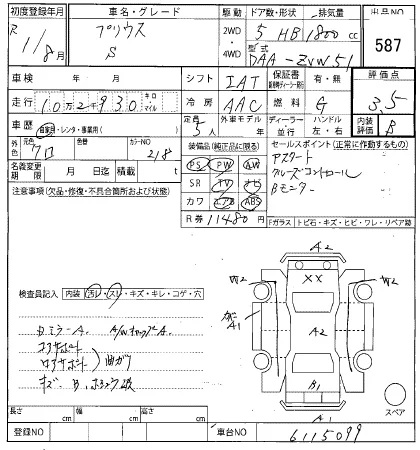 初度登録年月 車名・グレード 駆動 ドア数・形状 排気量 出品NO
R 1/8月 プリウス S 2WD・4WD 5 HB 1800 cc 587
型式 DAA-ZVW51
車検 年 月 シフト IAT 保証書 有・無 評価点
走行 10万2930 キロ・マイル 冷房 AAC 燃料 G 3.5
車歴 自家用・レンタ・事業用( ) 定員 5人 外車モデル 年 ディーラー・並行 ハンドル 左・右 内装評価 B
外色 元色 クロ 色替 カラーNO 218
装備品(純正品に限る) セールスポイント(正常に作動するもの)
名義変更期限 月 日迄 積載 t
PS PW AW アスタート
注意事項(欠品・修復・不具合箇所および状態) SR TV ナビ クルーズコントロール
カワ エアB ABS Bモニター
R券 11480円 Fガラス トビ石・キズ・ヒビ・ワレ・リペア跡
A2
XX
W2 W2
検査員記入 内装 汚レ・スレ・キズ・キレ・コゲ・穴
A1 A2
コアサポート
ロアサポート 曲ガリ
B1
スペア
A1
長さ cm 幅 cm 高さ cm
登録NO 車台NO 6115099